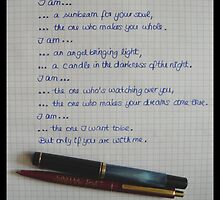 I am...
... a sunbeam for your soul,
... the one who makes you whole.
I am...
... an angel bringing light,
... a candle in the darkness of the night.
I am...
... the one who's watching over you,
... the one who makes your dreams come true.
I am...
... the one I want to be.
But only if you are with me.